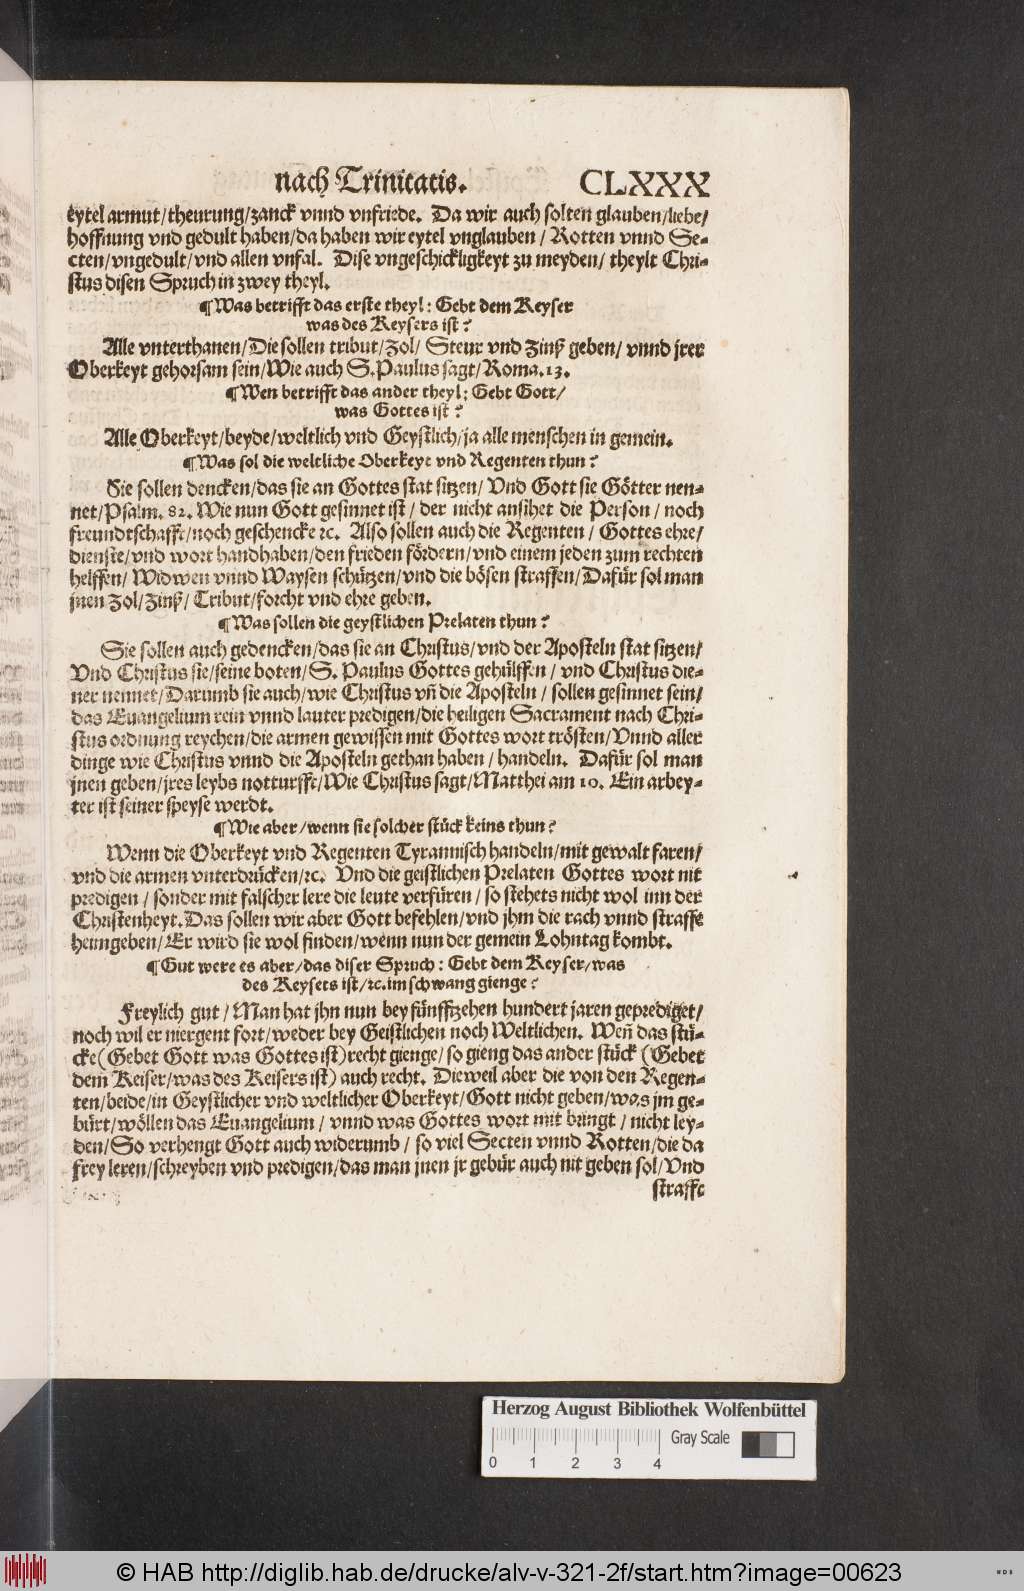 nach Trinitatis. CLXXX
eytel armut/theurung/zanck vnnd vnfriede. Da wir auch solten glauben/liebe/
hoffnung vnd gedult haben/da haben wir eytel vnglauben/ Rotten vnnd Se-
cten/vngedult/vnd allen vnfal. Dise vngeschickligkeyt zu meyden/ theylt Chri-
stus disen Spruch in zwey theyl.
¶Was betrifft das erste theyl: Gebt dem Keyser
was des Keysers ist?
Alle vnterthanen/Die sollen tribut/Zol/ Steur vnd Zinß geben/ vnnd jrer
Oberkeyt gehorsam sein/Wie auch S.Paulus sagt/Roma.13.
¶Wen betrifft das ander theyl: Gebt Gott/
was Gottes ist?
Alle Oberkeyt/beyde/weltlich vnd Geystlich/ja alle menschen in gemein.
¶Was sol die weltliche Oberkeyt vnd Regenten thun?
Sie sollen dencken/das sie an Gottes stat sitzen/ Vnd Gott sie Götter nen-
net/Psalm. 82. Wie nun Gott gesinnet ist/ der nicht ansihet die Person/ noch
freundtschafft/noch geschencke ꝛc. Also sollen auch die Regenten/ Gottes ehre/
dienste/vnd wort handhaben/den frieden fördern/vnd einem jeden zum rechten
helffen/ Widwen vnnd Waysen schützen/vnd die bösen straffen/Dafür sol man
jnen Zol/Zinß/ Tribut/forcht vnd ehre geben.
¶Was sollen die geystlichen Prelaten thun?
Sie sollen auch gedencken/das sie an Christus/vnd der Aposteln stat sitzen/
Vnd Christus sie/seine boten/ S. Paulus Gottes gehülffen/ vnd Christus die-
ner nennet/Darumb sie auch/wie Christus vñ die Aposteln/ sollen gesinnet sein/
das Euangelium rein vnnd lauter predigen/die heiligen Sacrament nach Chri-
stus ordnung reychen/die armen gewissen mit Gottes wort trösten/Vnnd aller
dinge wie Christus vnnd die Aposteln gethan haben/ handeln. Dafür sol man
jnen geben/jres leybs notturfft/Wie Christus sagt/Matthei am 10. Ein arbey-
ter ist seiner speyse werdt.
¶Wie aber/wenn sie solcher stück keins thun?
Wenn die Oberkeyt vnd Regenten Tyrannisch handeln/mit gewalt faren/
vnd die armen vnterdrücken/ꝛc. Vnd die geistlichen Prelaten Gottes wort nit
predigen/ sonder mit falscher lere die leute verfüren/ so stehets nicht wol inn der
Christenheyt. Das sollen wir aber Gott befehlen/vnd jhm die rach vnnd straffe
heimgeben/Er wird sie wol finden/wenn nun der gemein Lohntag kombt.
¶Gut were es aber/das diser Spruch: Gebt dem Keyser/was
des Keysers ist/ꝛc.im schwang gienge?
Freylich gut/ Man hat jhn nun bey fünffzehen hundert jaren geprediget/
noch wil er niergent fort/weder bey Geistlichen noch Weltlichen. Weñ das stü-
cke(Gebet Gott was Gottes ist)recht gienge/so gieng das ander stück (Gebet
dem Keiser/was des Keisers ist) auch recht. Dieweil aber die von den Regen-
ten/beide/in Geystlicher vnd weltlicher Oberkeyt/Gott nicht geben/was jm ge-
bürt/wöllen das Euangelium/ vnnd was Gottes wort mit bringt/ nicht ley-
den/So verhengt Gott auch widerumb/ so viel Secten vnnd Rotten/die da
frey leren/schreyben vnd predigen/das man jnen jr gebür auch nit geben sol/Vnd
straffe
Herzog August Bibliothek Wolfenbüttel
Gray Scale
0 1 2 3 4
© HAB http://diglib.hab.de/drucke/alv-v-321-2f/start.htm?image=00623